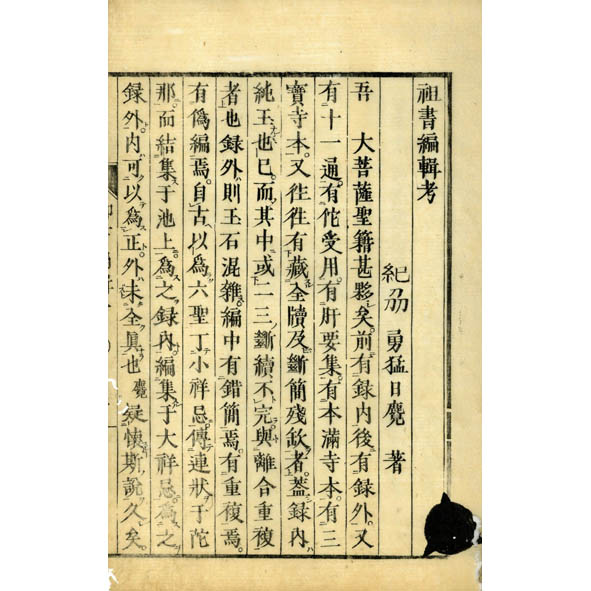 祖書編輯考
紀刕 勇猛日麑 著
吾 大菩薩聖籍甚夥矣前有録内後有録外又
有十一通有佗受用有肝要集有本滿寺本有三
寶寺本又往往有藏全牘及斷簡殘欽者蓋録内
純玉也已而其中或一二三斷續不完與離合重複
者也録外則玉石混雜編中有錯簡焉有重複焉
有僞編焉自古以爲六聖丁小祥忌傳連狀于陀
那而結集于池上爲之録内編集于大祥忌爲之
録外内可以爲正外未全眞也麑疑懷斯說久矣